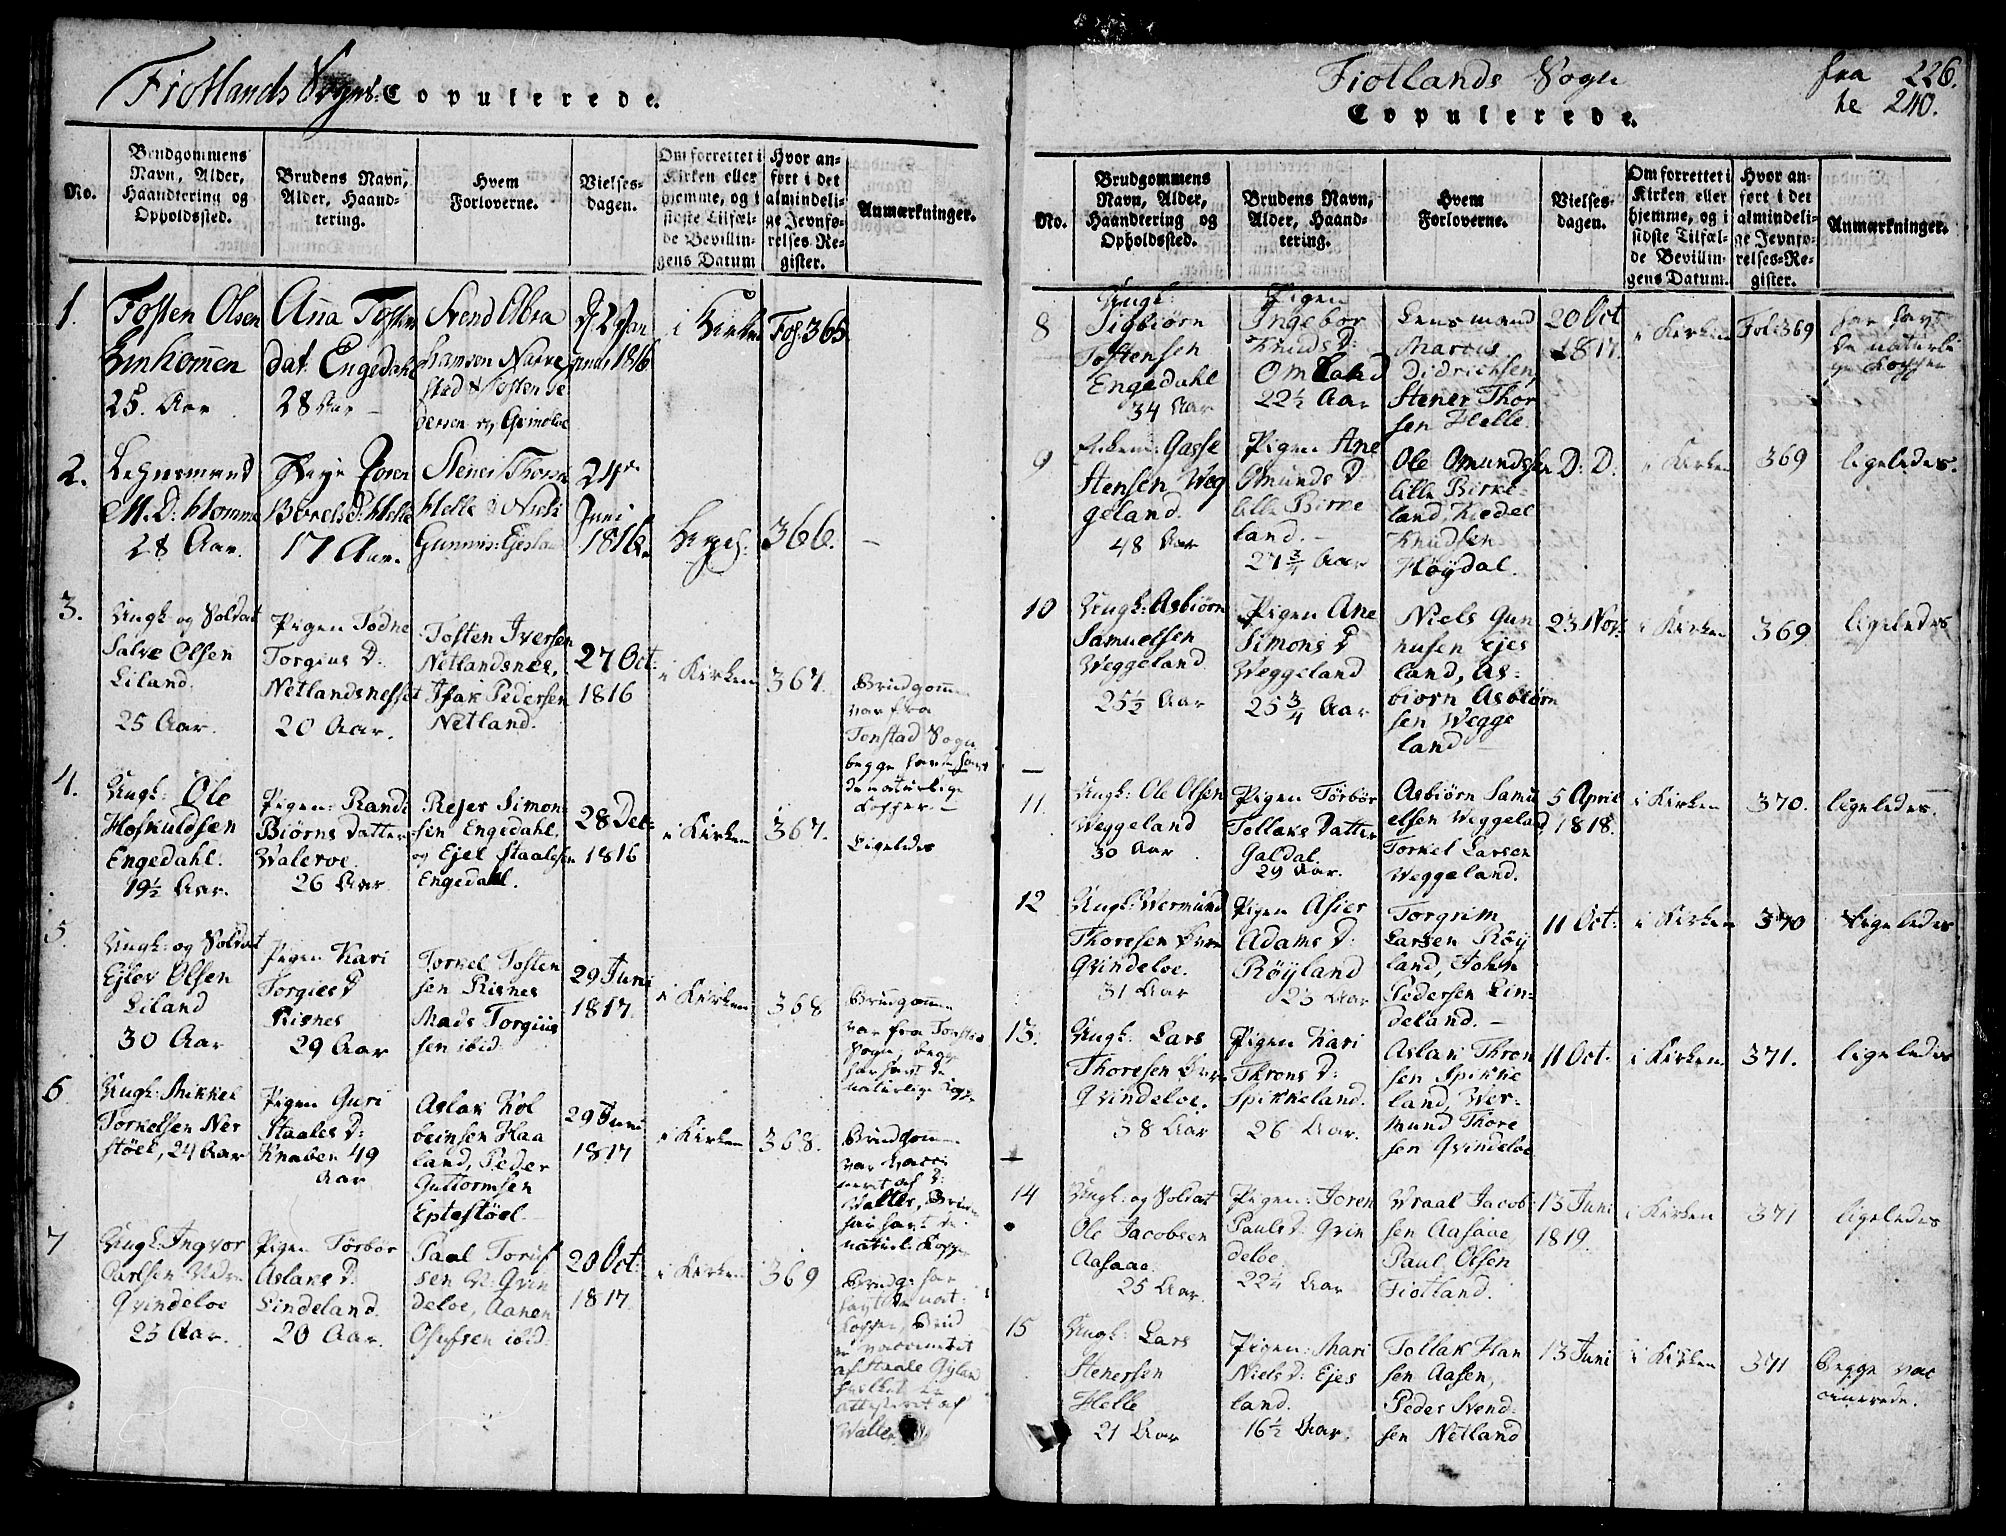 Fiotlands Sogns Copulerede.
No.
Brudgommens Navn, Alder, Haandtering og Opholdssted.
Brudens Navn, Alder, Haandtering.
Hvem Forloverne.
Vielses-dagen.
Om forrettet i Kirken eller hjemme, og i sidste Tilfælde Bevillingens Datum
Hvor anført i det almindelige Jevnførelses-Register.
Anmærkninger.
1.
Tosten Olsen
25. Aar
Anna Tosten
dat Engedahl
28 Aar
Svend Abra
hamsen Narve
stad & Tosten Pe
dersen
1816
i Kirken
Fol 365
2.
Lehnsmand
M. D. Homme
28 Aar.
Pige Joren
Børels D: Helle
17 Aar.
Stener Thors
Helle & Niels
Gunnus: Ejesland
24de
Juni
1816.
366.
3.
Ungk: og Soldat
Salve Olsen
Liland.
25 Aar.
Pigen Tødne
Torgius D:
Netlandsnesset
20 Aar.
Tosten Iversen
Netlandsnes,
Isak Pedersen
Netland.
27 Oct:
1816
i Kirken
367.
Brudgommen
var fra
Tonstad Sogn
begge have havt
de naturlige
Kopper.
4.
Ungk: Ole
Hoskuldsen
Engedahl.
19½ Aar.
Pigen: Randi
Biørns Datter
Valevoe.
26 Aar
Rejer Simon-
sen Engedahl,
og Ejel Staalesen
Engedahl.
28 Dec:
1816
i Kirken
367.
Ligeledes
5.
Ungk: og Soldat
Ejlev Olsen
Liland
30 Aar
Pigen Kari
Torgies D
Risnes
29 Aar
Torkel Tosten
sen Risnes
Mads Torgius
sen ibid:
29 Juni
1817.
i Kirken
368
Brudgommen
var fra Tonstad
Sogn, begge
har havt de
naturlige Kopp:
6
Ungk: Mikkel
Torkelsen Ner
støel, 24 Aar
Pigen Guri
Staales D:
Knaben 49
Aar
Aslak Kol
beinsen Haa
land, Peder
Guttormsen
Eptestøel
29 Juni
1817
i Kirken
368.
Brudgommen
var vacci
neret af D:
Walter, Bruden
har havt de
naturli: Kopper
7
Ungk: Ingvor
Carlsen Nedre
Qvindeloe
25 Aar.
Pigen Tørbør
Aslaks D:
Lindeland.
20 Aar.
Paal Toruf
sen N: Qvin
deloe, Aanen
Olufsen ibid:
20 Oct:
1817.
i Kirken
369
Brudg: har
havt de nat:
Kopper, Brud
er vaccineret
af Staale Gyland
hvilket er
attesteret af
Walter
Fiotlands Sogn
Copulerede.
fra 226.
te 240.
No.
Brudgommens Navn, Alder, Haandtering og Opholdssted.
Brudens Navn, Alder, Haandtering.
Hvem Forloverne.
Vielses-dagen.
Om forrettet i Kirken eller hjemme, og i sidste Tilfælde Bevillingens Datum.
Hvor anført i det almindelige Jevnførelses-Register.
Anmærkninger.
8
Ungk:
Sigbiørn
Tostensen
Engedahl
34 Aar
Pigen
Ingebor
Knuds D:
Omland
22½ Aar
Lensmand
Marcus
Didrichsen,
Stener Thor
sen Helle.
20 Oct
1817.
i Kirken
Fol: 369
har havt
de naturli
ge Kopper
9
Enkem: Gasse
Stensen Veg
geland.
48 Aar
Pigen Ane
Omunds D
lille Birke
land.
27 3/4 Aar
Ole Omundsen
lille Birke-
land, Kedel
Knudsen
Høydal.
D: D:
i Kirken
369
ligeledes.
10
Ungk: Asbiørn
Samuelsen
Weggeland
25½ Aar
Pigen Ane
Simons D
Weggeland
25 3/4 Aar
Niels Gun
nusen Ejes
land, As-
biørn Asbiørn
sen Wegge
land
23 Nov:
i Kirken
369
ligeledes
11
Ungk: Ole Olsen
Weggeland
30 Aar
Pigen Tørbør
Tollaks Datter
Galdal.
29 Aar.
Asbiørn Samu
elsen Weggeland,
Torkel Larsen
Weggeland.
5 April
1818.
i Kirken
370.
ligeledes.
12
Ungk: Wermund
Thoresen Øvre
Qvindeloe.
31 Aar
Pigen Asier
Adams D:
Røyland
23 Aar
Torgrim
Larsen Røy
land, John
Pedersen Lin-
deland.
11 Oct:
i Kirken
370
Ligeledes
13.
Ungk: Lars
Thoresen Øvre
Qvindeloe.
38 Aar
Pigen Kari
Throns D:
Spikkeland.
26 Aar.
Aslak Thron
sen Spikke
land, Wer-
mund Thore
sen Qvindeloe
11 Oct:
i Kirken
371.
ligeledes
14
Ungk: og Soldat
Ole Jacobsen
Aasaae.
25 Aar.
Pigen: Joren
Pauls D: Qvin
deloe.
22¼ Aar
Wraal Jacob-
sen Aasaae,
Paul Olsen
Fiotland.
13 Juni
1819.
i Kirken
371
ligeledes
15
Ungk: Lars
Stenersen
Helle
21 Aar
Pigen: Mari
Niels D: Ejes
land.
16½ Aar.
Tollak Han
sen Aasen,
Peder Svend-
sen Netland
13 Juni
i Kirken
371
begge vac
cinerede.